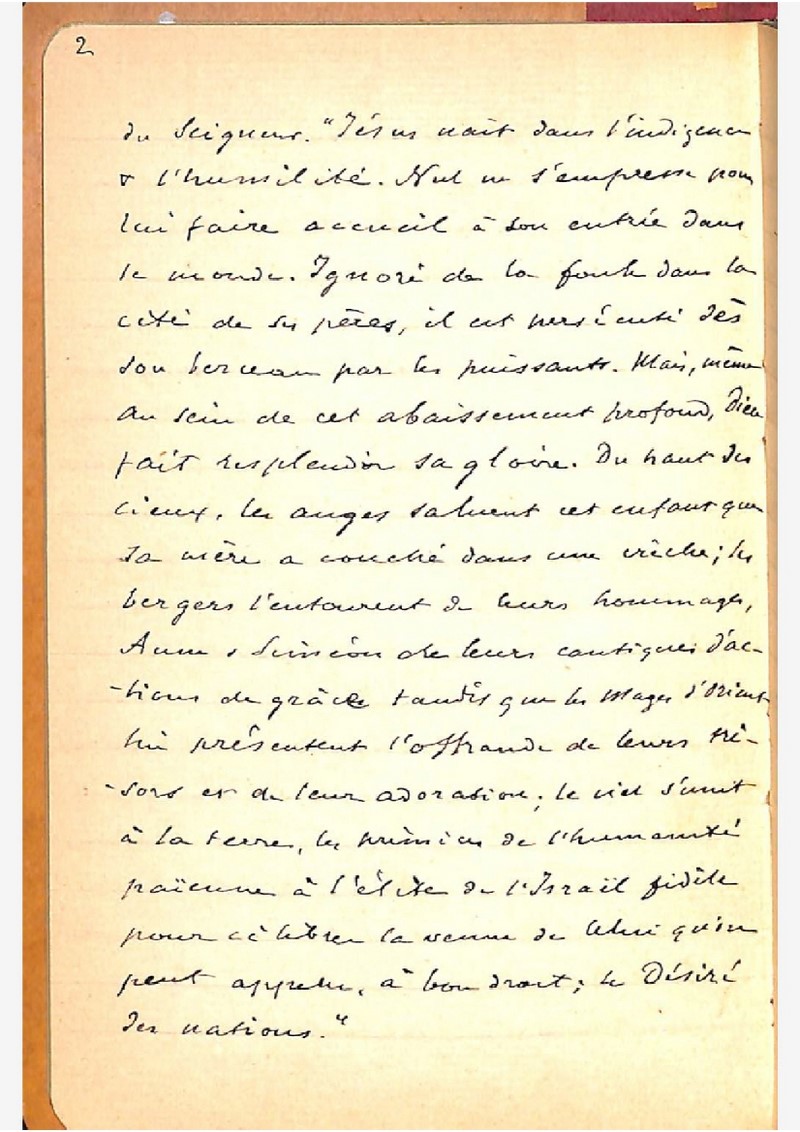 2
du Seigneur. "Jésus naît dans l'indigence
& l'humilité. Nul ne s'empresse pour
lui faire accueil à son entrée dans
le monde. Ignoré de la foule dans la
cité de ses pères, il est persécuté dès
son berceau par les puissants. Mais, même
au sein de cet abaissement profond, Dieu
fait resplendir sa gloire. Du haut des
cieux, les anges saluent cet enfant que
sa mère a couché dans une crèche; les
bergers l'entourent de leurs hommages,
Anne & Siméon de leurs cantiques d'ac-
-tions de grâce tandis que les Mages d'Orient
lui présentent l'offrande de leurs tré-
-sors et de leur adoration; le ciel s'unit
à la terre, les prémices de l'humanité
païenne à l'élite de l'Israël fidèle
pour célébrer la venue de Celui qu'on
peut appeler, à bon droit; le Désiré
des nations."